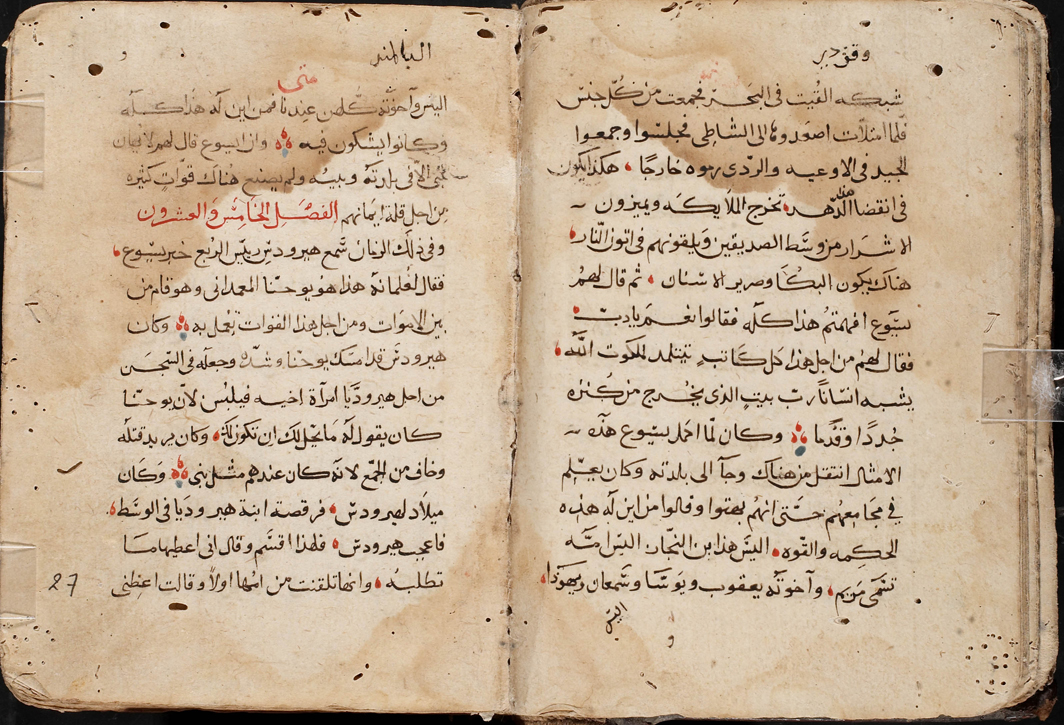 وقف دير
شبكه القيت في البحر فجمعت من كل جنس
فلما امتلات اصعدوها الى الشاطى فجلسوا وجمعوا
الجيد في الاوعيه والردى رموه خارجًا هكذا يكون
في انقضا هذا الدهر تخرج الملايكه ويميزون
الاشرار من وسط الصديقين ويلقونهم في اتون النار
هناك يكون البكا وصرير الاسنان ثم قال لهم
يسوع افهمتم هذا كله فقالوا نعم يا رب
فقال لهم من اجل هذا كل كاتب يتلمد لملكوت الله
يشبه انسانًا رب بيت الذي يخرج من كنزه
جددًا وقدما وكان لما اكمل يسوع هذه
الامثال انتقل من هناك وجا الى بلدته وكان يعلم
في مجامعهم حتى انهم بهتوا وقالوا من اين له هذه
الحكمه والقوه اليس هذا ابن النجار اليس امه
تسمى مريم واخوته يعقوب ويوسا وسمعان ويهوذا
اليس
البلمند
متى
اليس واخوته كلهن عندنا فمن اين له هذا كله
وكانوا يشكون فيه وان يسوع قال لهم لا يهان
نبى الا في بلدته وبيته ولم يصنع هناك قوات كثيره
من اجل قلة ايمانهم الفصل الخامس والعشرون
وفي ذلك الزمان سمع هيرودس رييس الربع خبر يسوع
فقال لغلمانه هذا هو يوحنا المعمداني وهو قام من
بين الاموات ومن اجل هذا القوات تعمل به وكان
هيرودس قد امسك يوحنا وشده وجعله في السجن
من اجل هيروديا امرأة اخيه فيلبس لان يوحنا
كان يقول له ما تحل لك ان تكون لك وكان يريد قتله
وخاف من الجمع لانه كان عندهم مثل نبى وكان
ميلاد لهيرودس فرقصة ابنة هيروديا في الوسط
فاعجب هيرودس فلهذا اقسم وقال اني اعطيها ما
تطلبه وانها تلقنت من امها اولاً وقالت اعطني
27